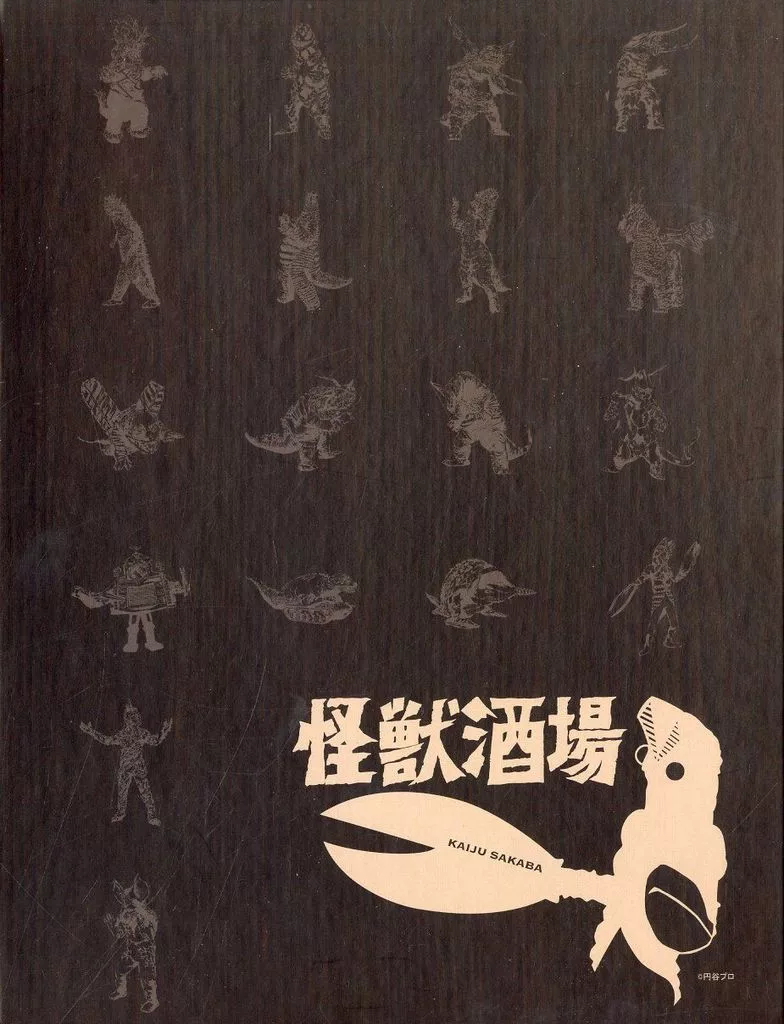 怪獣酒場
KAIJU SAKABA
©円谷プロ